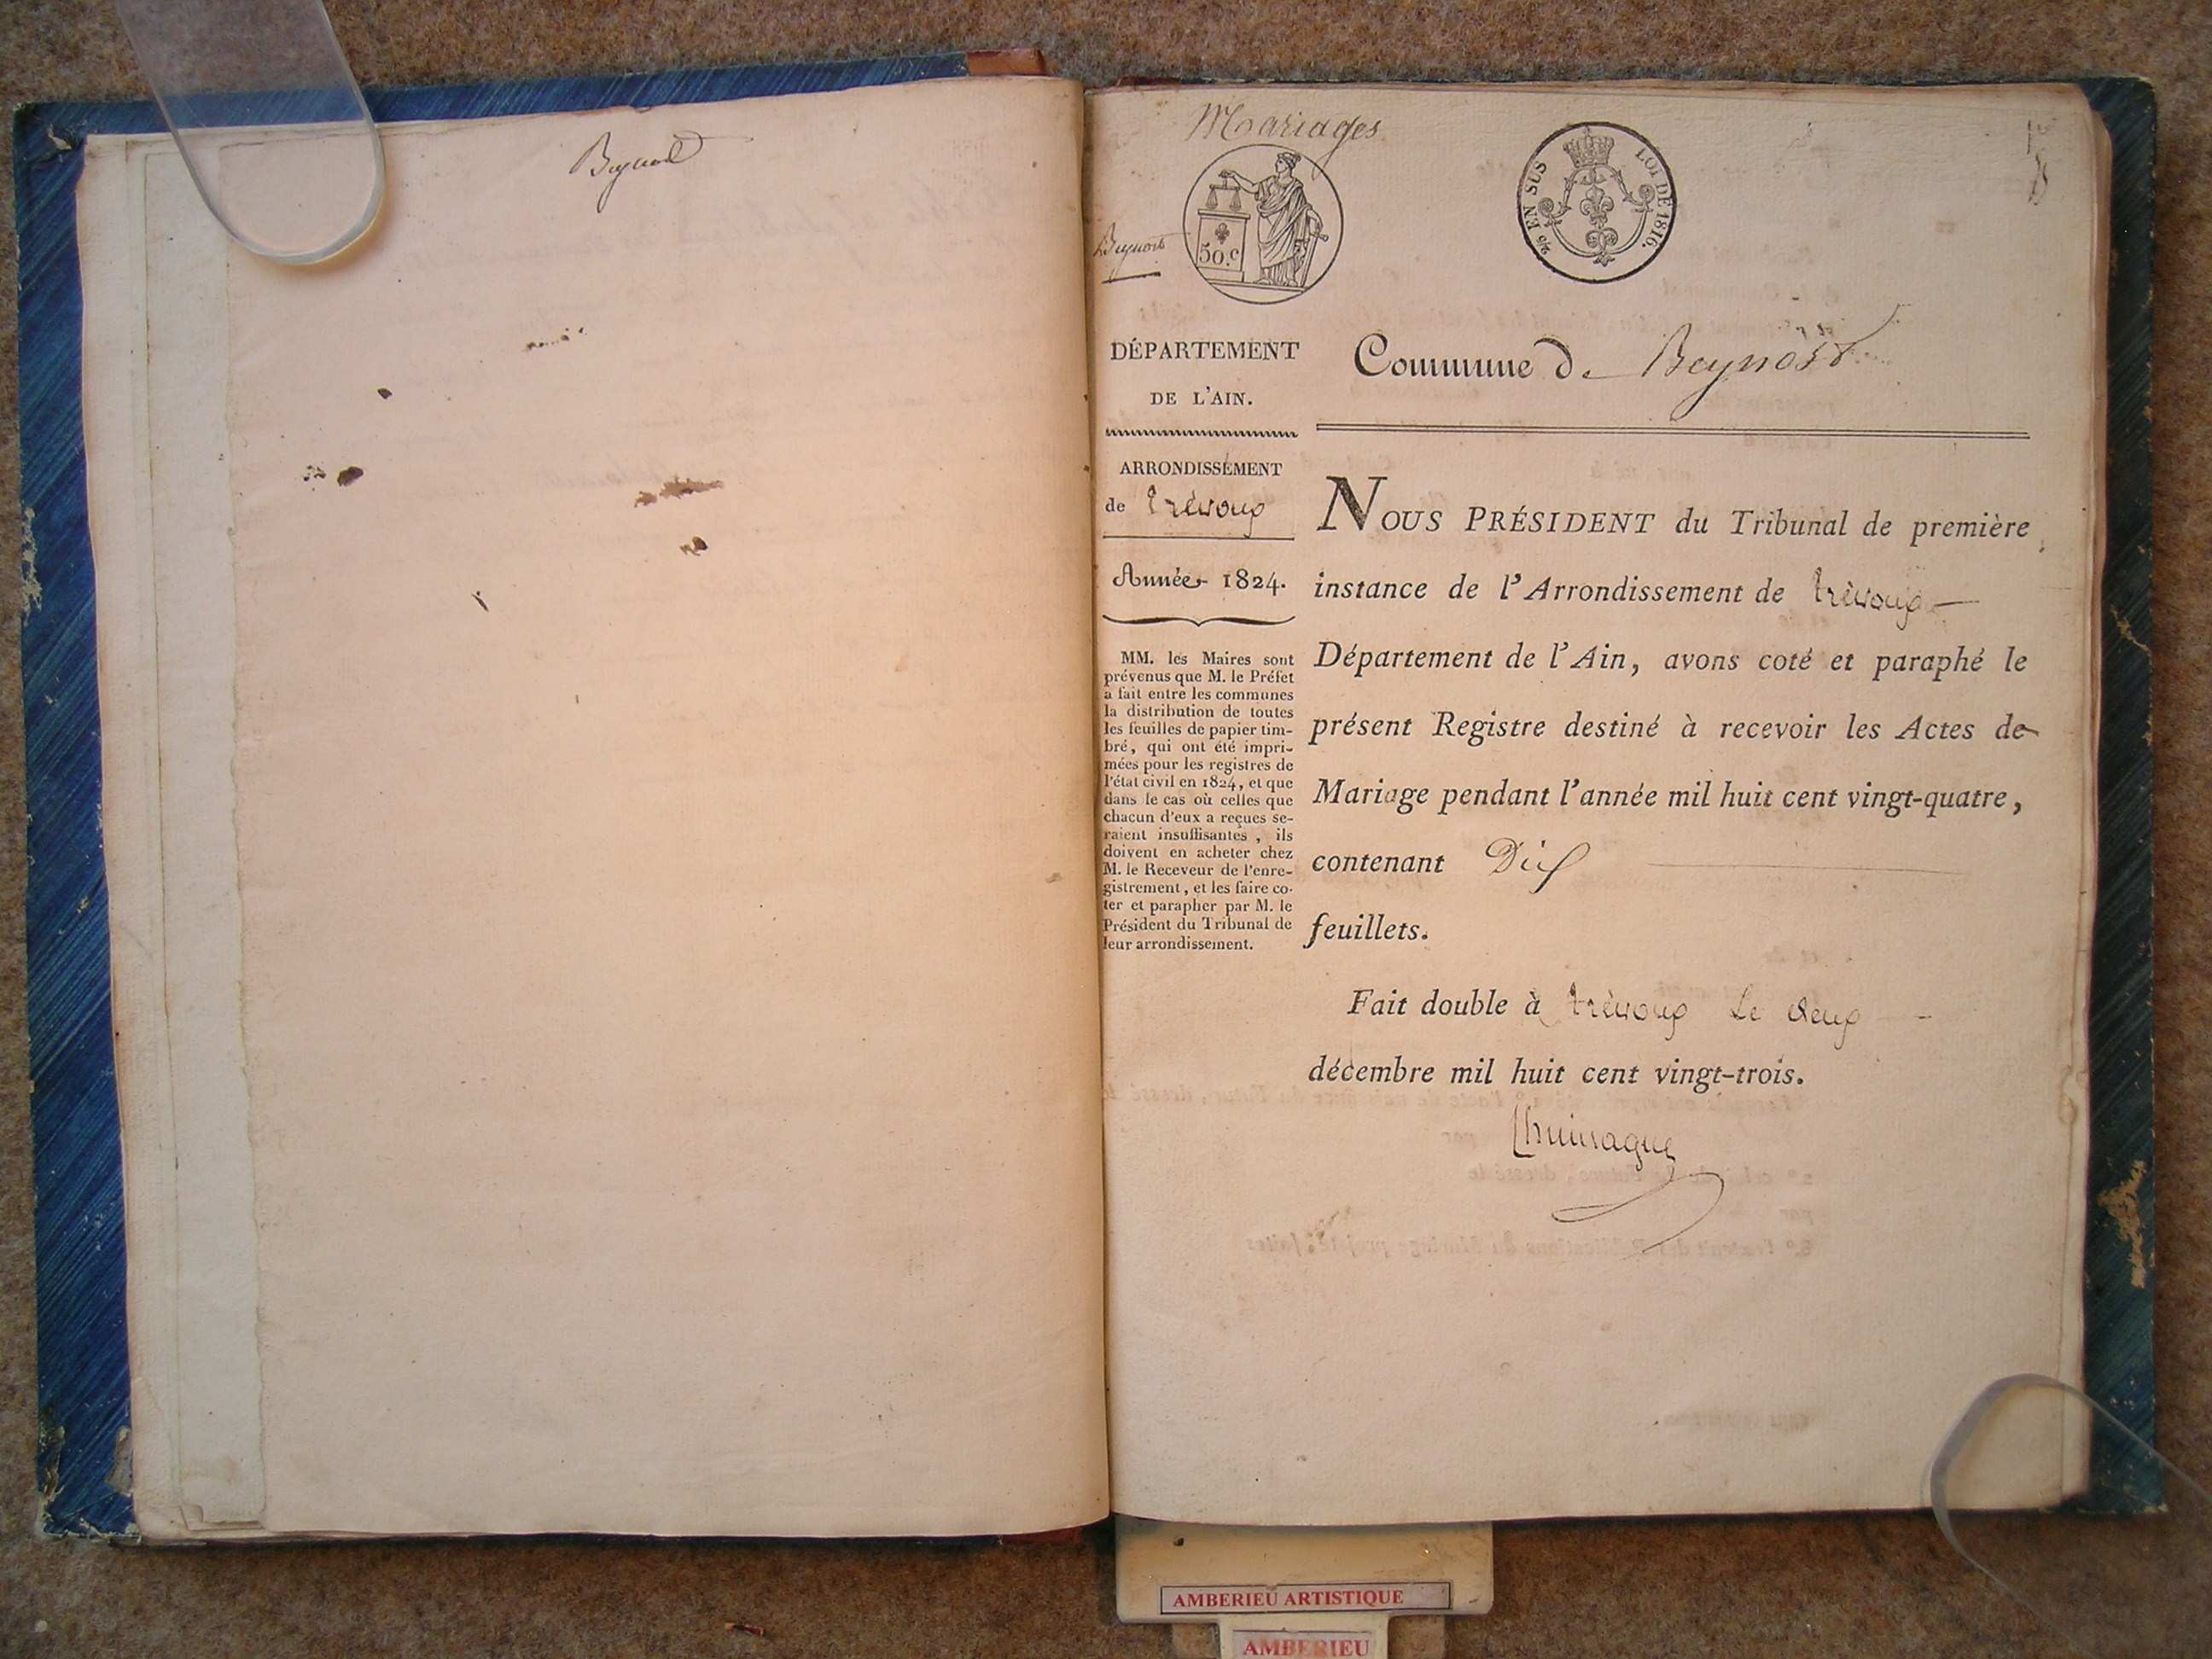 Beynost
Mariages
Beynost
50.c
c/s EN SUS LOI DE 1816.
DÉPARTEMENT
DE L'AIN.
ARRONDISSEMENT
de trévoux
Année 1824.
MM. les Maires sont
prévenus que M. le Préfet
a fait entre les communes
la distribution de toutes
les feuilles de papier tim-
bré, qui ont été impri-
mées pour les registres de
l'état civil en 1824, et que
dans le cas où celles que
chacun d'eux a reçues se-
raient insuffisantes, ils
doivent en acheter chez
M. le Receveur de l'enre-
gistrement, et les faire co-
ter et parapher par M. le
Président du Tribunal de
leur arrondissement.
Commune de Beynost
NOUS PRÉSIDENT du Tribunal de première
instance de l'Arrondissement de trévoux
Département de l'Ain, avons coté et paraphé le
présent Registre destiné à recevoir les Actes de
Mariage pendant l'année mil huit cent vingt-quatre,
contenant Dix
feuillets.
Fait double à trévoux Le deux
décembre mil huit cent vingt-trois.
AMBERIEU ARTISTIQUE
AMBERIEU